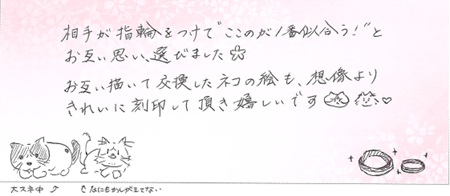 相手が指輪をつけて"ここのが1番似合う！"と
お互い思い、選びました☆
お互い描いて交換したネコの絵も、想像より
きれいに刻印して頂き嬉しいです♡
大スネ中♪
なにもかんがえてない